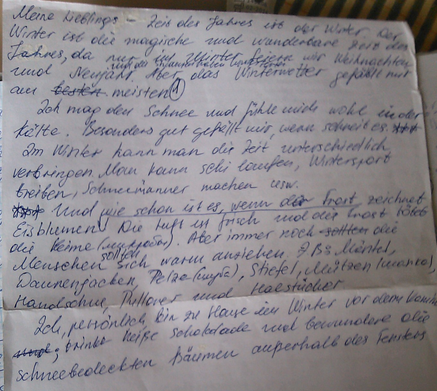 Meine Lieblings - Zeit des Jahres ist der Winter. Der
Winter ist die magische und wunderbare Zeit des
Jahres, da nur im Winter wir Weihnachten
und Neujahr. Aber das Winterwetter gefällt mir
am besten meisten 1
Ich mag den Schnee und fühle mich wohl in der
Kälte. Besonders gut gefällt mir, wenn schneit es.
Im Winter kann man die Zeit unterschiedlich
verbringen. Man kann Schi laufen, Wintersport
treiben, Schneemänner machen usw.
Und wie schon ist es, wenn der Frost zeichnet
Eisblumen! Die Luft ist frisch und die Frost tötet
die Keime (микробы). Aber immer noch sollten die
Menschen sollen sich warm anziehen. Z.Bs Mäntel,
Daunenjacken, Pelze (шуба), Stiefel, Mützen (шапка),
Handschue, Pullover und Haestücher
Ich, persönlich, bin zu Hause im Winter vor dem Kamin
trinke heiße Schokolade und bewundere die
schneebedeckten Bäumen außerhalb des Fensters